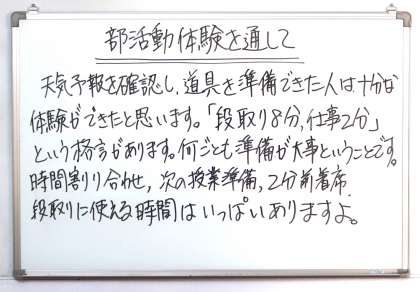 部活動体験を通して
天気予報を確認し、道具を準備できた人は十分な
体験ができたと思います。「段取り8分、仕事2分」
という格言があります。何ごとも準備が大事ということです。
時間割り合わせ、次の授業準備、2分前着席、
段取りに使える時間はいっぱいありますよ。